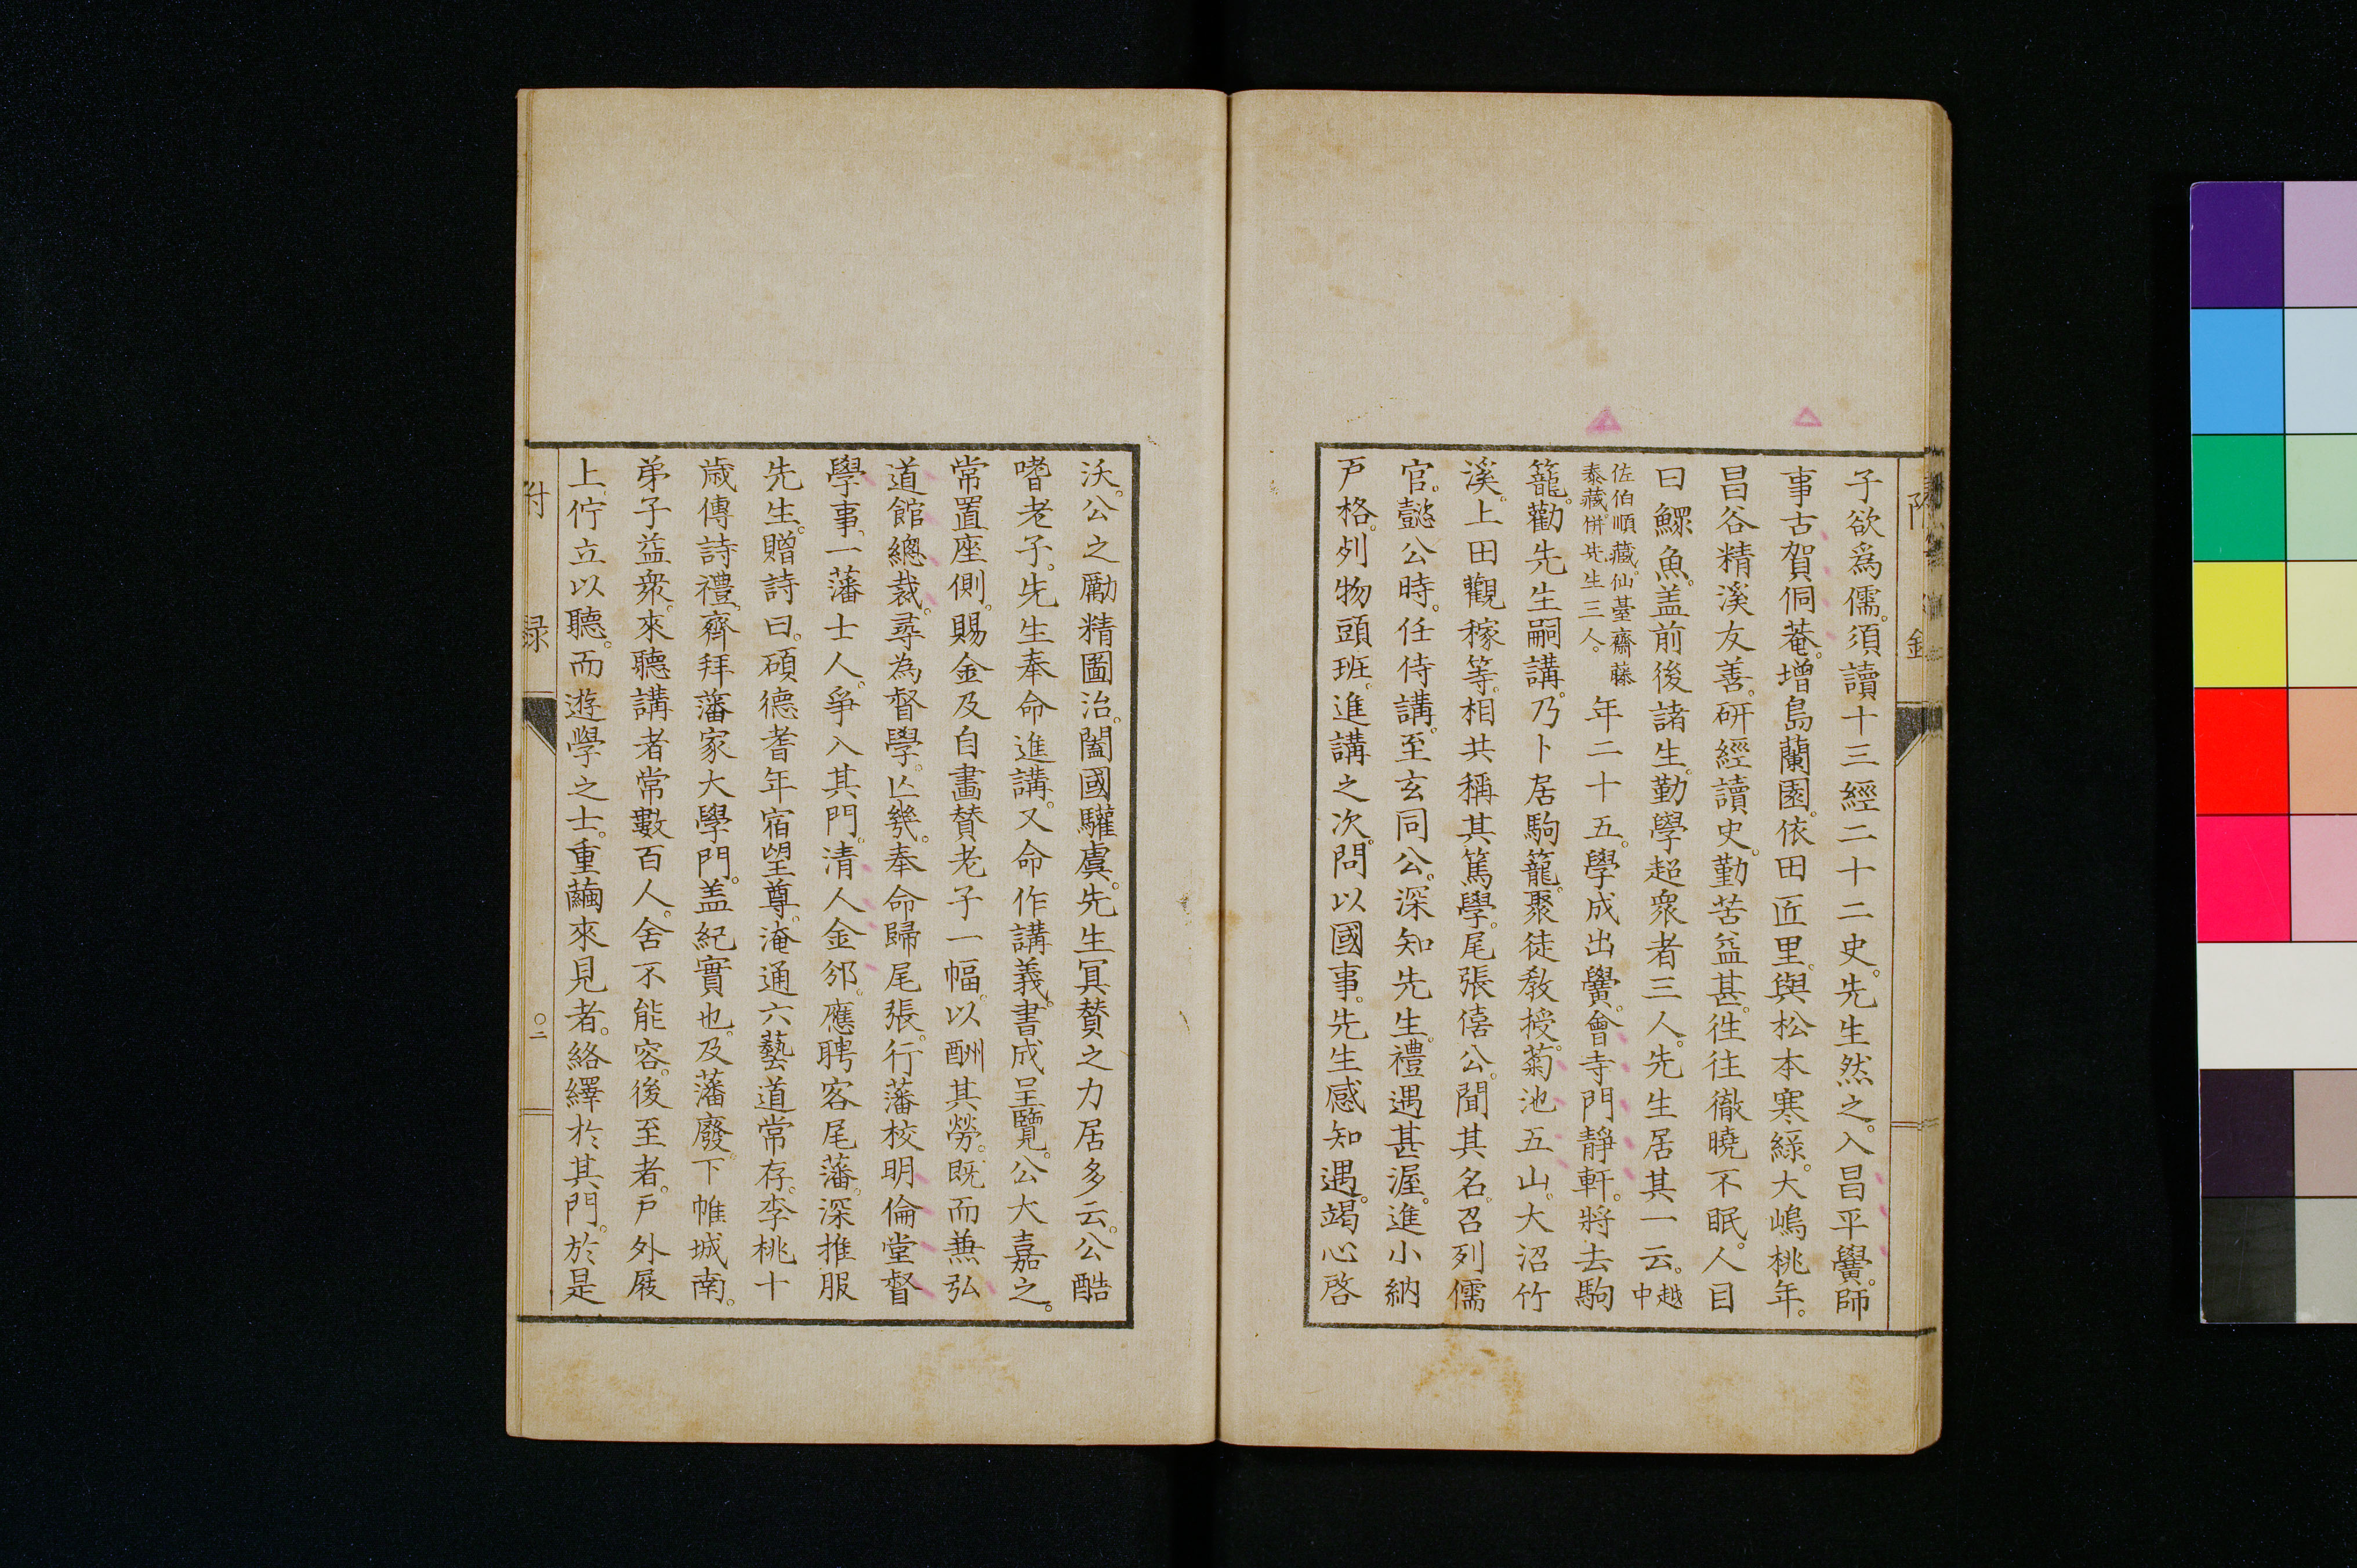 子欲爲儒。須讀十三經二十二史。先生然之。入昌平黌。師
事古賀侗菴。增島蘭園。依田匠里。與松本寒綠。大嶋桃年。
昌谷精溪友善。研經讀史。勤苦益甚。徃往徹曉不眠。人目
曰鰥魚。盖前後諸生。勤學超衆者三人。先生居其一云。越中
佐伯順藏。仙臺齋藤
泰藏。併先生三人。
年二十五。學成出黌。會寺門靜軒。將去駒
籠。勸先生嗣講。乃卜居駒籠。聚徒敎授。菊池五山。大沼竹
溪。上田觀稼等。相共稱其篤學。尾張僖公。聞其名。召列儒
官。懿公時。任侍講。至玄同公。深知先生。禮遇甚渥。進小納
戸格。列物頭班。進講之次。問以國事。先生感知遇。竭心啓
沃。公之勵精圖治。闔國驩虞。先生冥賛之力居多云。公酷
嗜老子。先生奉命進講。又命作講義。書成呈覽。公大嘉之。
常置座側。賜金及自畫賛老子一幅。以酬其勞。既而兼弘
道館總裁。尋為督學。亾幾。奉命歸尾張。行藩校明倫堂督
學事、一藩士人。爭入其門。清人金邠。應聘客尾藩。深推服
先生。贈詩曰。碩德耆年宿望尊。淹通六藝道常存。李桃十
歲傳詩禮、齊拜藩家大學門。盖紀實也。及藩廢。下帷城南。
弟子益衆。來聽講者常數百人。舍不能容。後至者。戸外屐
上佇立以聽。而遊學之士。重繭來見者。絡繹於其門。於是
附 録
〇二